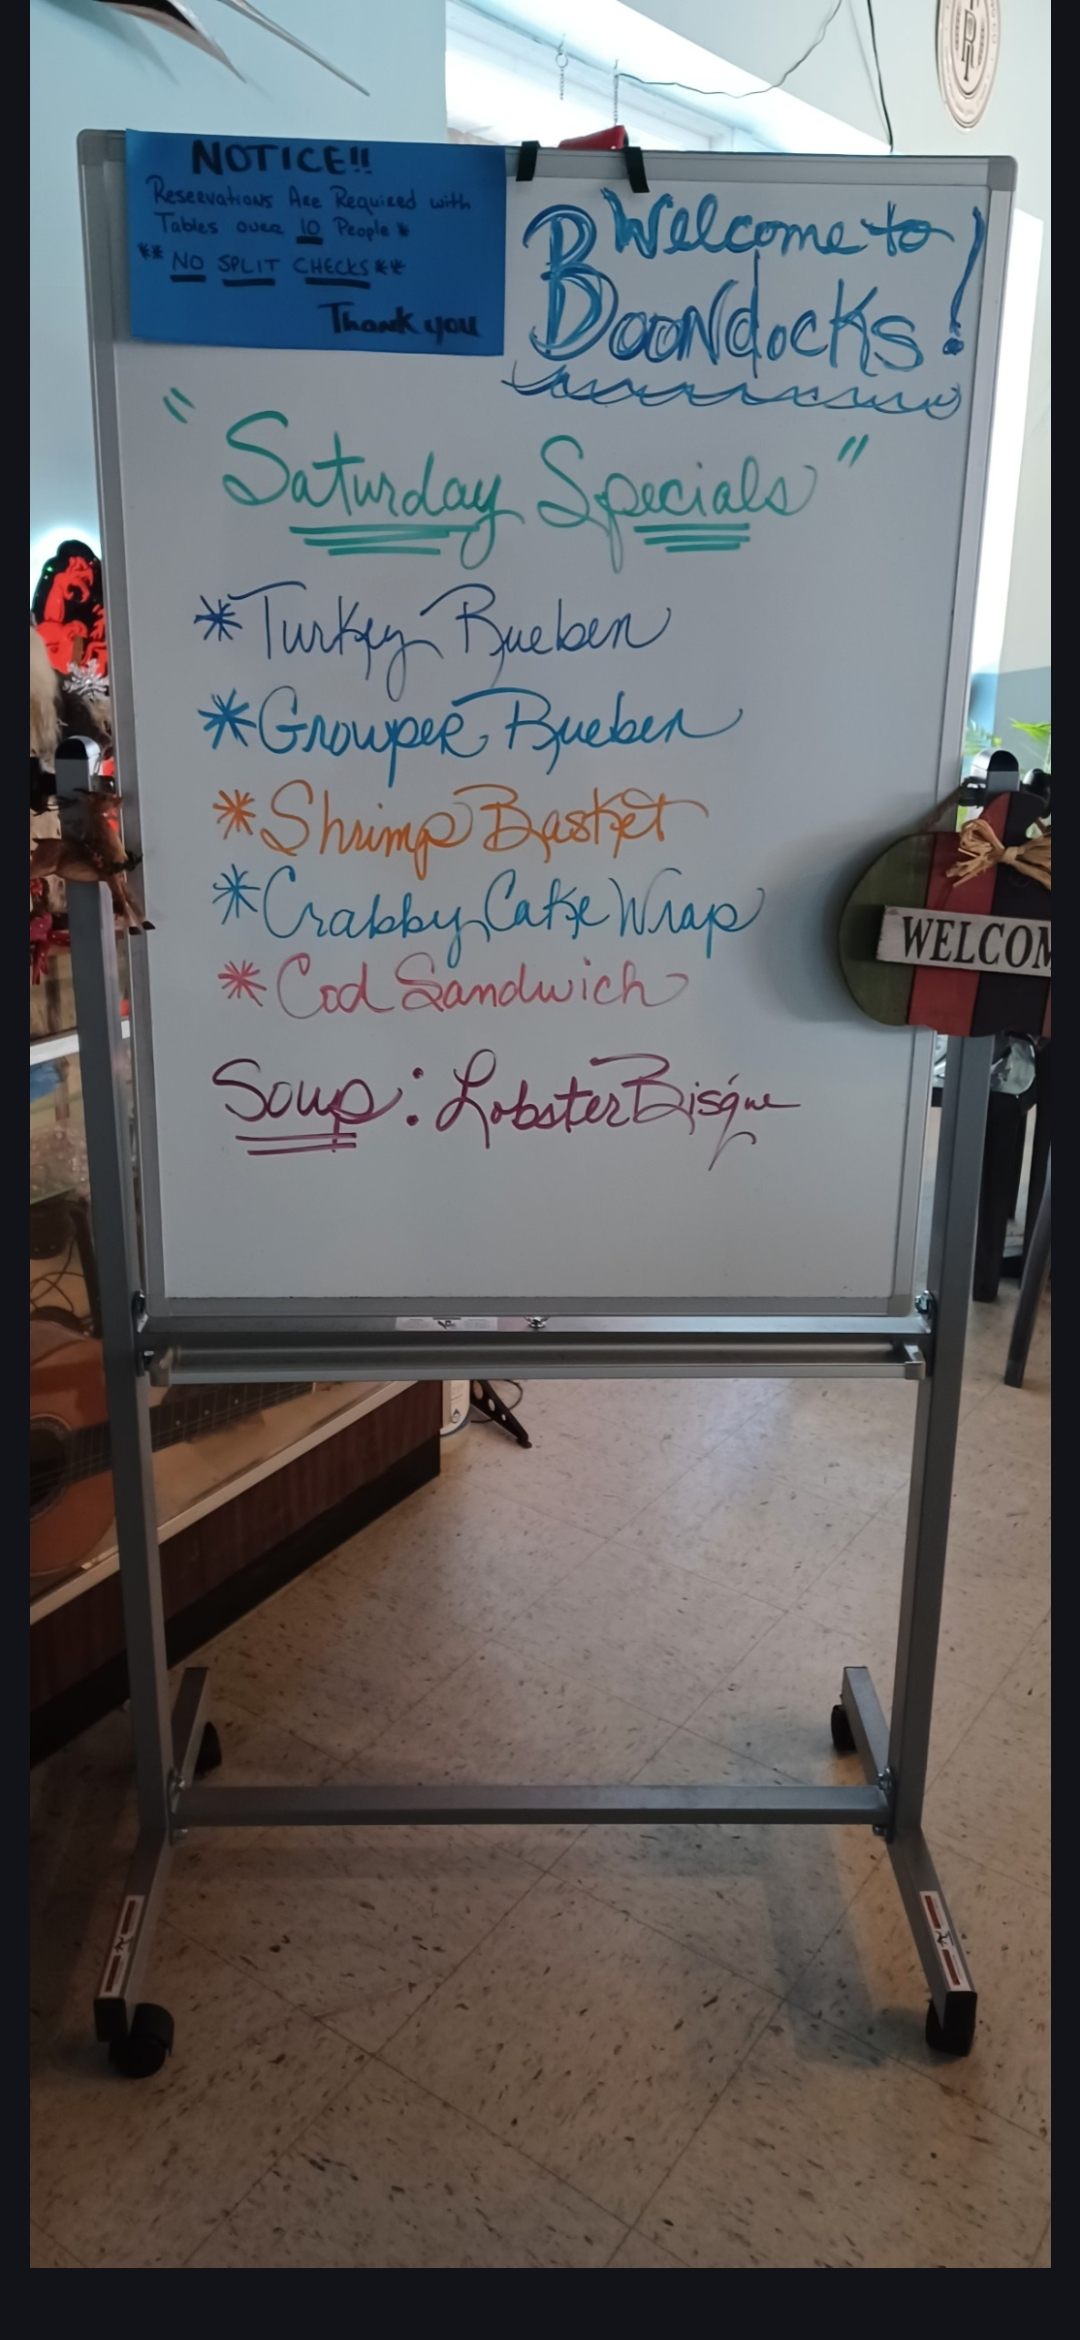 NOTICE!!
Reservations Are Required with
Tables over 10 People *
** NO SPLIT CHECKS **
Thank you
Welcome to
Boondocks!
"Saturday Specials"
* Turkey Rueben
* Grouper Rueben
* Shrimp Basket
* Crabby Cake Wrap
* Cod Sandwich
Soup: Lobster Bisque
WELCOM